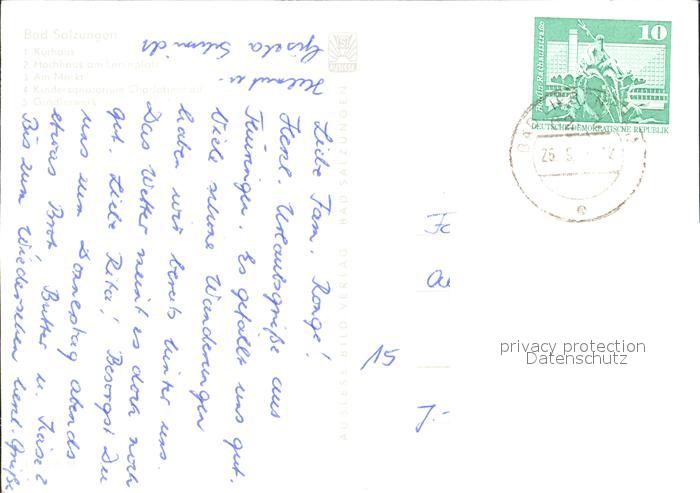 Bad Salzungen
1 Kurhaus
2 Hochhaus am Leninplatz
3 Am Markt
4 Kindersanatorium Charlottenhall
5 Gradierwerk
Liebe Fam. Ronge!
Herzl. Urlaubsgrüße aus
Thüringen. Es gefällt uns gut.
Viele schöne Wanderungen
haben wir bereits hinter uns.
Das Wetter meint es doch noch
gut. Liebe Rita! Besorgst Du
uns zum Donnerstag abends
etwas Brot, Butter u. Käse?
Bis zum Wiedersehen herzl. Grüße
u.
Gisela Schmidt
AUSLESE-BILD-VERLAG BAD SALZUNGEN
10
Berlin, Rathausstraße
DEUTSCHE DEMOKRATISCHE REPUBLIK
BAD
26
e
15
privacy protection
Datenschutz